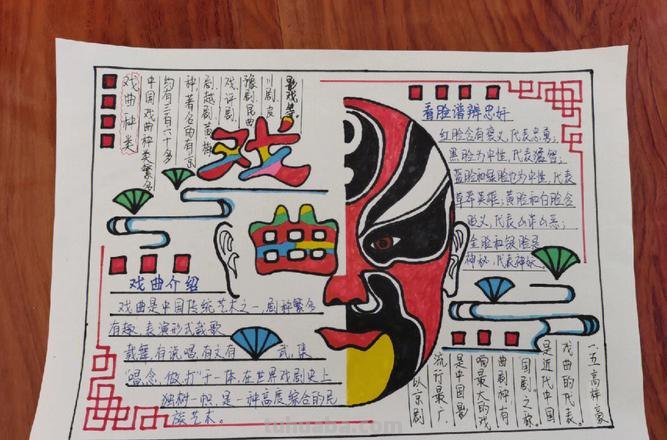 戏曲
戏曲种类
中国戏曲种类繁多
约有三百六十多
种,著名的有京
剧,越剧,黄梅
戏,评剧
豫剧,昆曲
川剧,皮
影戏等。
看脸谱辨忠奸
红脸含有褒义,代表忠勇;
黑脸为中性,代表猛智;
蓝脸和绿脸也为中性,代表
草莽英雄;黄脸和白脸含
贬义,代表凶诈凶恶;
金脸和银脸是
神秘,代表神妖。
戏曲介绍
戏曲是中国传统艺术之一,剧种繁多
有趣,表演形式载歌
载舞,有说唱,有文有武,集
"唱,念,做,打"于一体,在世界戏剧史上
独树一帜,是一种高度综合的民
族艺术。
戏曲的代表。
是近代中国
国剧"之称,
曲剧种,有
响最大的戏
是中国影
流行最广,
以京剧
tuhuaba.com